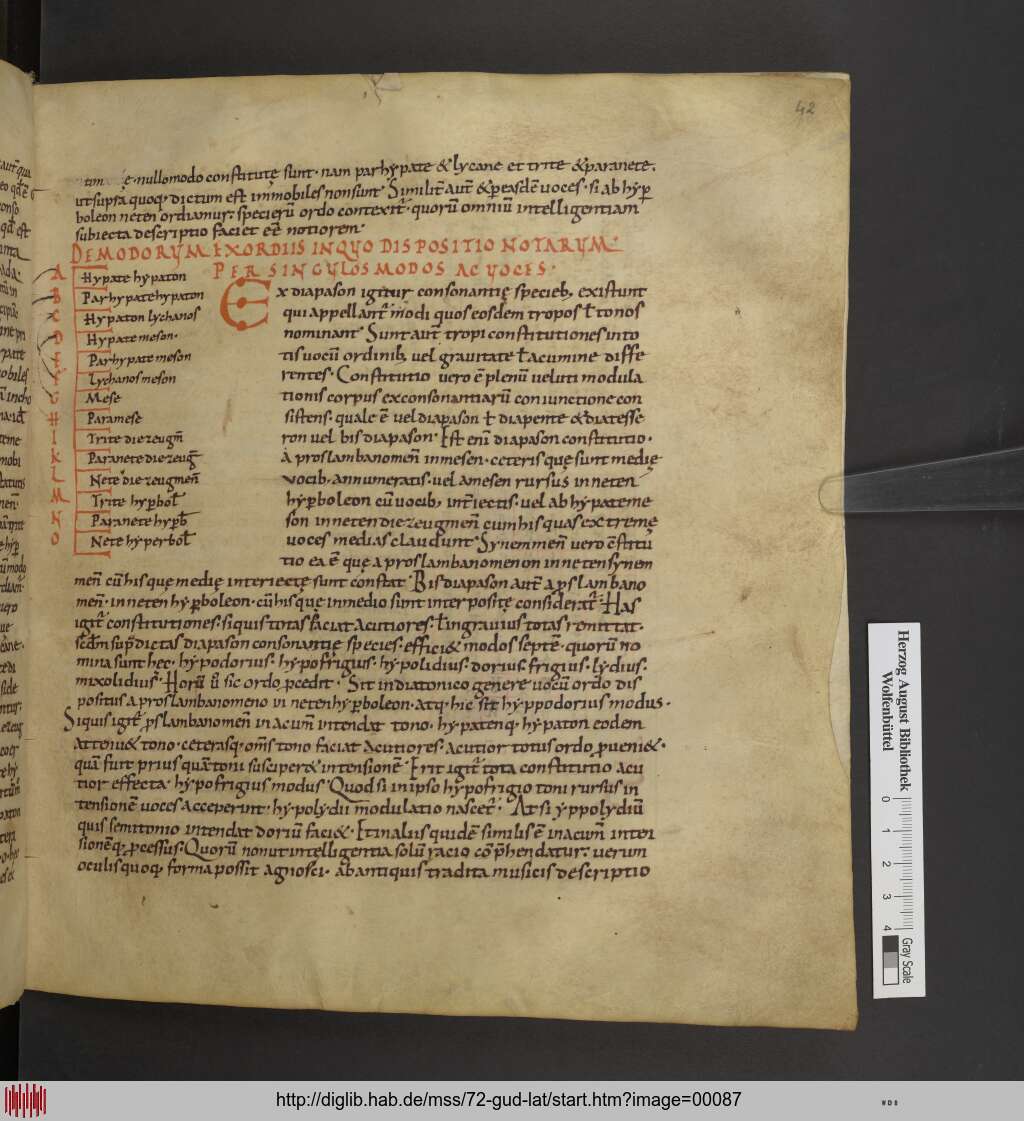 42
ę· nullomodo constitutę sunt· nam parhẏpate & lycane et trite & paranete·
ut supra quoq· dictum est immobiles non sunt· Similit̄ aut̄ & p easdē voces· si ab hẏp
boleon neten ordiamur· specierū ordo contexit̄· quorū omniū intelligentiam
subiecta descriptio faciet eē notiorem·
DE MODORVM EXORDIIS IN QVO DISPOSITIO NOTARVM
PER SINGVLOS MODOS AC VOCES·
A Hypate hẏpaton
B Parhypate hẏpaton
C Hypaton lychanos
D Hypate meson·
E Parhypate meson
F lychanos meson
G Mese
H Paramese
I Trite diezeugm̄
K Paranete diezeuḡ
L Nete diezeugmen̄
M Trite hẏpbol̄
N Paranete hyp̄b
O Nete hẏperbol̄
Ex diapason igitur consonantię specieb; existunt
qui appellant̄ modi quos eosdem tropos ł tonos
nominant· Sunt aut̄ tropi constitutiones in to
tis vocū ordinib; vel gravitate ł acumine diffe
rentes· Constitutio vero ē plenū veluti modula
tionis corpus ex consonantiarū coniunctione con
sistens· quale ē vel diapason ł diapente & diatesse
ron vel bis diapason· Est enī diapason constitutio·
A proslambanomen̄ in mesen· ceteris quę sunt medię
vocib; annumeratis· vel a mesen rursus in neten
hẏpboleon cū vocib; int̄iectis· vel ab hẏpate me
son in neten diezeugmen̄ cum his quas extremę
voces medias claudunt· Synemmen̄ vero cēstitu
tio ea ē quę a proslambanomenon in neten sẏnem
men̄ cū his quę medię interiectę sunt constat· Bis diapason aut̄ a pslambano
men̄· in neten hẏpboleon· cū his quę in medio sunt interpositę considerat̄· Has
igit̄ constitutiones· si quis totas faciat acutiores· ł in gravius totas remittat·
scdm̄ supdictas diapason consonantię species· effici& modos septē· quorū no
mina sunt hec· hẏpodorius· hẏpofrigius· hẏpolidius· dorius· frigius· lẏdius·
mixolidius· Horū ū sic ordo pcedit· Sit in diatonico genere vocū ordo dis
positus a proslambanomeno in neten hẏpboleon· atq· hic sit hẏppodorius modus·
Si quis igit̄ pslambanomen̄ in acum̄ intendat tono· hẏpatenq· hẏpaton eodem
atteniu& tono· ceterasq· oms̄ tono faciat acutiores· acutior totus ordo pueni&·
quā fuit prius quā toni susciper& intensionē· Erit igit̄ tota constitutio acu
tior effecta· hẏpofrigius modus· Quod si in ipso hẏpofrigio toni rursus in
tensionē voces acceperint· hẏpolydii modulatio nascet̄· At si ẏppolydiū
quis semitonio intendat doriū faci&· Et in aliis quidē similis ē in acum̄ inten
sionēq; pcessus· Quorū non ut intelligentia solū racio cōphendatur· verum
oculis quoq; forma possit agnosci· ab antiquis tradita musicis descriptio
Herzog August Bibliothek
Wolfenbüttel
0 1 2 3 4
Gray Scale
http://diglib.hab.de/mss/72-gud-lat/start.htm?image=00087